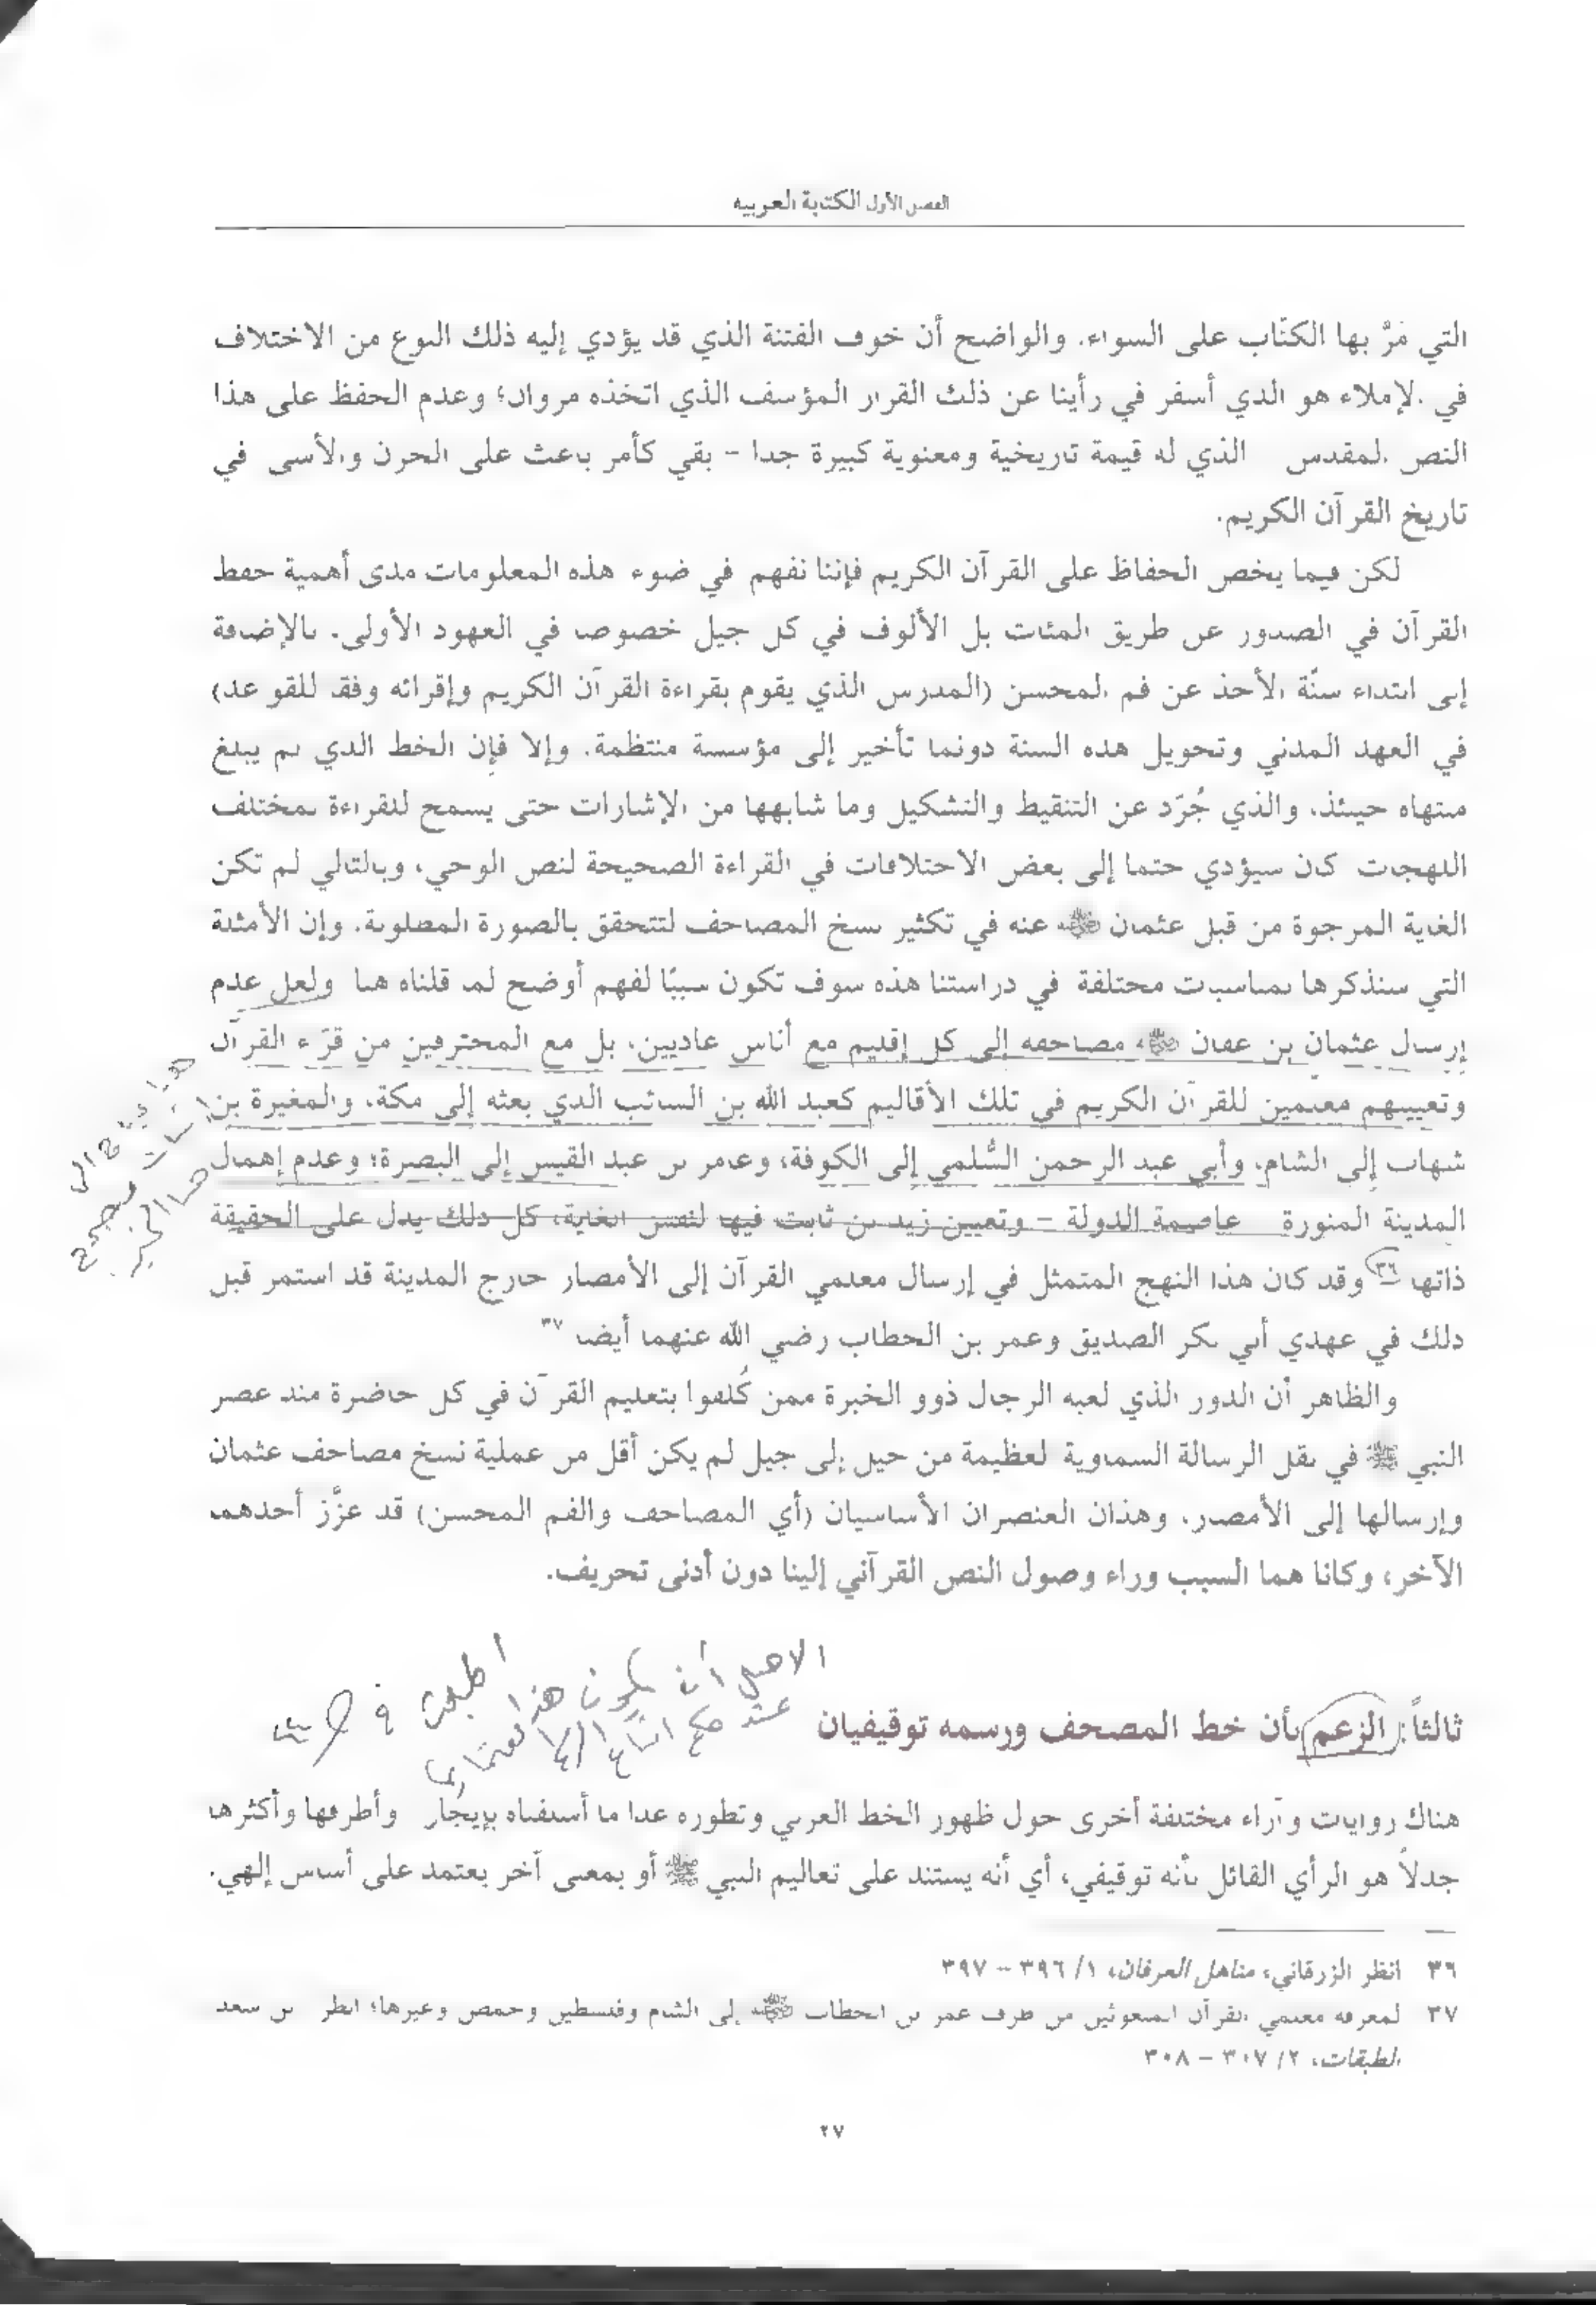 الفصل الأول الكتابة العربية
التي مَرَّ بها الكتّاب على السواء. والواضح أن خوف الفتنة الذي قد يؤدي إليه ذلك النوع من الاختلاف
في الإملاء هو الذي أسفر في رأينا عن ذلك القرار المؤسف الذي اتخذه مروان؛ وعدم الحفظ على هذا
النص المقدس الذي له قيمة تاريخية ومعنوية كبيرة جدا - بقي كأمر باعث على الحزن والأسى في
تاريخ القرآن الكريم.
لكن فيما يخص الحفاظ على القرآن الكريم فإننا نفهم في ضوء هذه المعلومات مدى أهمية حفظ
القرآن في الصدور عن طريق المئات بل الألوف في كل جيل خصوصا في العهود الأولى. بالإضافة
إلى ابتداء سنّة الأخذ عن فم المحسن (المدرس الذي يقوم بقراءة القرآن الكريم وإقرائه وفقا للقواعد)
في العهد المدني وتحويل هذه السنة دونما تأخير إلى مؤسسة منتظمة. وإلا فإن الخط الذي لم يبلغ
منتهاه حينئذ، والذي جُرّد عن التنقيط والتشكيل وما شابهها من الإشارات حتى يسمح للقراءة بمختلف
اللهجات كان سيؤدي حتما إلى بعض الاختلافات في القراءة الصحيحة لنص الوحي، وبالتالي لم تكن
الغاية المرجوة من قبل عثمان ﵁ عنه في تكثير نسخ المصاحف لتتحقق بالصورة المطلوبة. وإن الأمثلة
التي سنذكرها بمناسبات مختلفة في دراستنا هذه سوف تكون سببًا لفهم أوضح لما قلناه هنا ولعل عدم
إرسال عثمان بن عفان ﵁ مصاحفه إلى كل إقليم مع أناس عاديين، بل مع المحترفين من قرّاء القرآن
وتعيينهم معلمين للقرآن الكريم في تلك الأقاليم كعبد الله بن السائب الذي بعثه إلى مكة، والمغيرة بن
شهاب إلى الشام، وأبي عبد الرحمن السُّلمي إلى الكوفة، وعامر بن عبد القيس إلى البصرة؛ وعدم إهمال
المدينة المنورة عاصمة الدولة - وتعيين زيد بن ثابت فيها لنفس الغاية، كل ذلك يدل على الحقيقة
ذاتها ٣٦ وقد كان هذا النهج المتمثل في إرسال معلمي القرآن إلى الأمصار خارج المدينة قد استمر قبل
ذلك في عهدي أبي بكر الصديق وعمر بن الخطاب رضي الله عنهما أيضا ٣٧
والظاهر أن الدور الذي لعبه الرجال ذوو الخبرة ممن كُلفوا بتعليم القرآن في كل حاضرة منذ عصر
النبي ﷺ في نقل الرسالة السماوية العظيمة من جيل إلى جيل لم يكن أقل من عملية نسخ مصاحف عثمان
وإرسالها إلى الأمصار. وهذان العنصران الأساسيان (أي المصاحف والفم المحسن) قد عزَّز أحدهما
الآخر، وكانا هما السبب وراء وصول النص القرآني إلينا دون أدنى تحريف.
الاصل أن يكون هذا
ثالثاً: الزعم بأن خط المصحف ورسمه توقيفيان
هناك روايات وآراء مختلفة أخرى حول ظهور الخط العربي وتطوره عدا ما أسلفناه بإيجاز وأطرفها وأكثرها
جدلاً هو الرأي القائل بأنه توقيفي، أي أنه يستند على تعاليم النبي ﷺ أو بمعنى آخر يعتمد على أساس إلهي.
٣٦ انظر الزرقاني، مناهل العرفان، ١/ ٣٩٦ - ٣٩٧
٣٧ لمعرفة معلمي القرآن المبعوثين من طرف عمر بن الخطاب ﵁ إلى الشام وفلسطين وحمص وغيرها؛ انظر بن سعد
الطبقات، ٢/ ٣٠٧ - ٣٠٨
٢٧